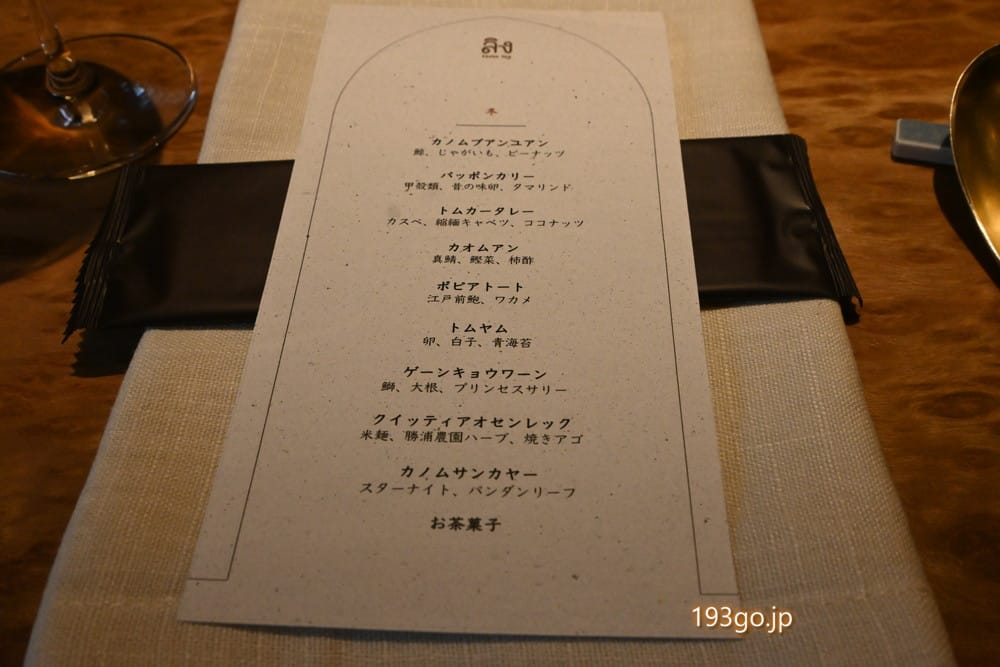 ลิง
冬
カノムブアンユアン
鯨、じゃがいも、ピーナッツ
パッポンカリー
甲殻類、昔の味卵、タマリンド
トムカータレー
カスベ、縮緬キャベツ、ココナッツ
カオムアン
真鯖、鰹菜、柿酢
ポピアトート
江戸前鮑、ワカメ
トムヤム
卵、白子、青海苔
ゲーンキョウワーン
鰤、大根、プリンセスサリー
クイッティアオセンレック
米麺、勝浦農園ハーブ、焼きアゴ
カノムサンカヤー
スターナイト、パンダンリーフ
お茶菓子
193go.jp